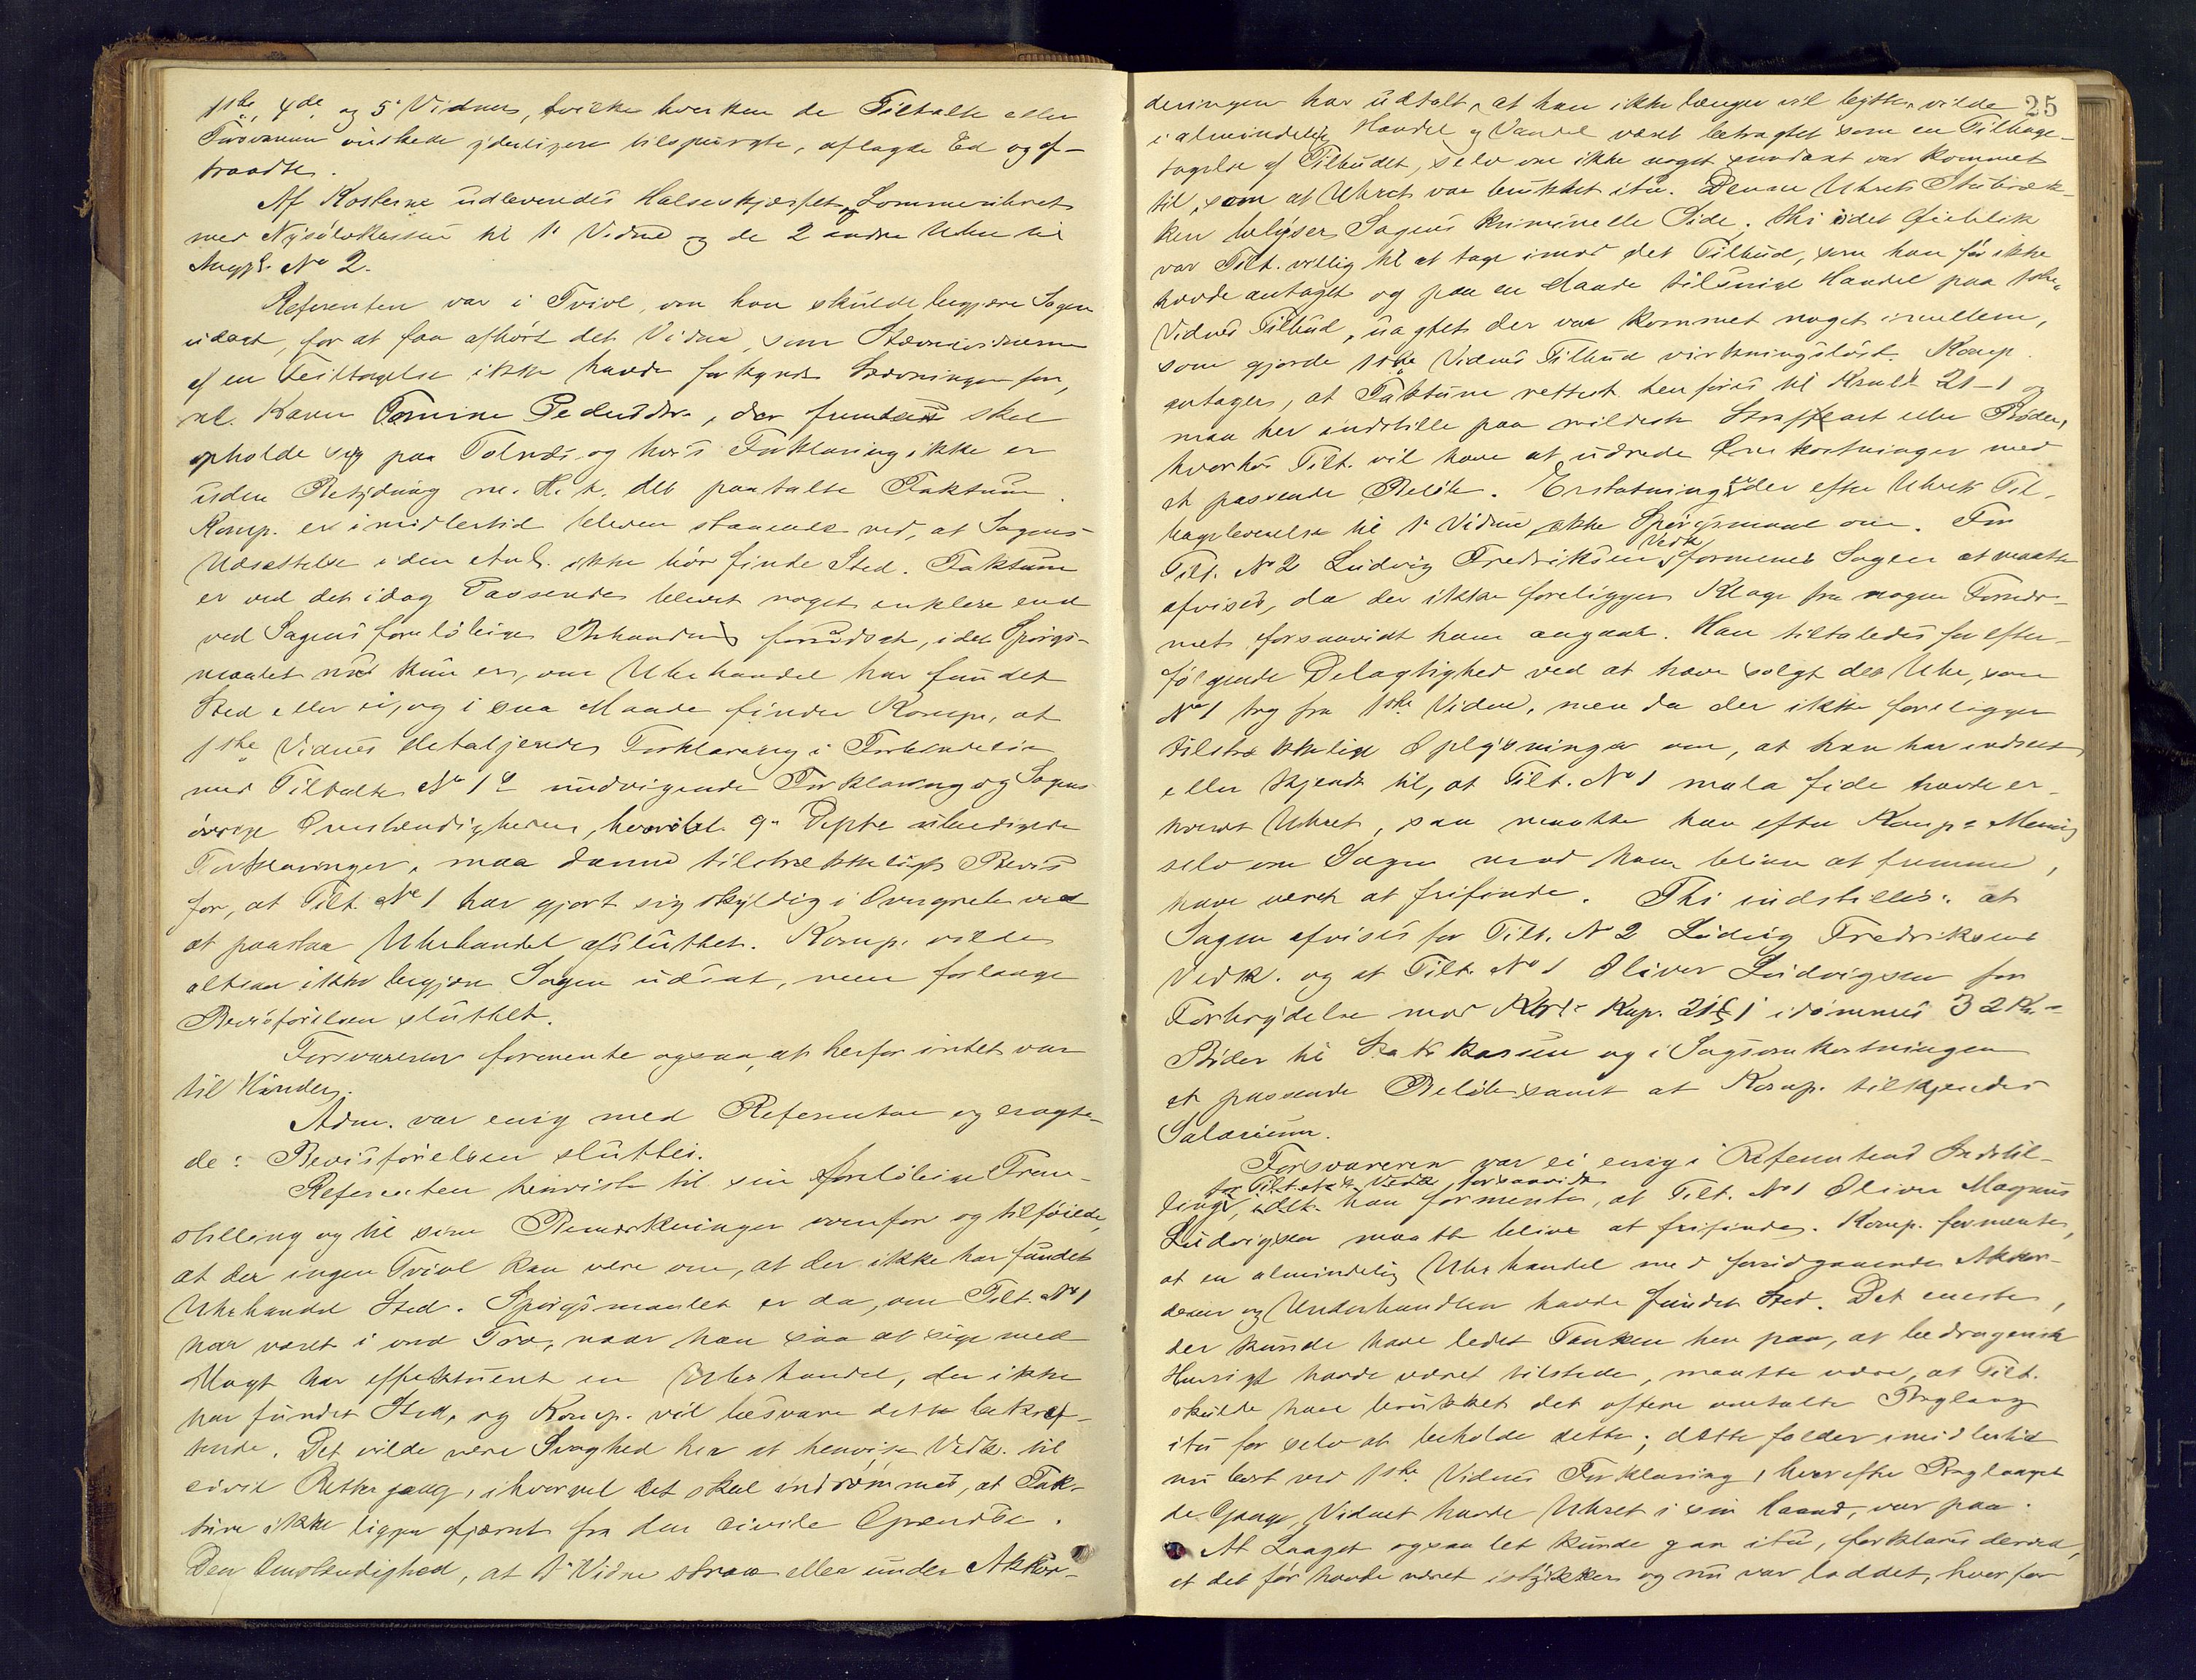 1ste, 4de og 5' Vidner, hvilke hverken de Tiltalte eller
Forsvareren önskede yderligere tilspurgte, aflagde Ed og af-
traadte.
Af Kosterne udleveredes Halsverkjæstet, Lommeuhret
med Nysölvkassen til 1' Vidne og de 2 andre Uhre til
Angjl. No 2.
Referenten var i Tvivl, om han skulde begjære Sagen
udsat, for at faa afhört det Vidne, som Stævnevidnerne
af en Feiltagelse ikke havde forkyndt Stævningen for,
nl. Karen Tomine Pedersdtr., der fremdeles skal
opholde sig paa Tolnæs og hvis Forklaring ikke er
uden Betydning m. H. t. det paatalte Faktum.
Komp. er imidlertid bleven staaende ved, at Sagens
Udsættelse i den Anl. ikke bör finde Sted. Faktum
er ved det idag Passerede blevet noget enklere end
ved Sagens foreløbige Behandling forudsat, idet Spörgs-
maalet nu kun er, om Uhrhandel har fundet
Sted eller ei, og i saa Maade finder Komp., at
1ste Vidnes detaljerede Forklaring i Forbindelse
med Tiltalte No 1s undvigende Forklaring og Sagens
övrige Omstændigheder, hvoriblt. 9' Depts ubeedigede
Forklaringer, maa danne tilstrækkeligt Bevis
for, at Tilt. No 1 har gjort sig skyldig i Overgreb ved
at paastaa Uhrhandel afsluttet. Komp. vilde
altsaa ikke begjære Sagen udsat, men forlange
Bevisförelsen sluttet.
Forsvareren formente ogsaa, at herfor intet var
til Hinder.
Adm. var enig med Referenten og eragte-
de: Bevisförelsen sluttes.
Referenten henviste til sin foreløbige Frem-
stilling og til sine Bemærkninger ovenfor og tilföiede,
at der ingen Tvivl kan være om, at der ikke har fundet
Uhrhandel Sted. Spörgsmaalet er da, om Tilt. No 1
har været i ond Tro, naar han saa at sige med
Magt har effektueret en Uhrhandel, der ikke
har fundet Sted, og Komp. vil besvare dette bekræf-
tende. Det vilde være Svaghed her at henvise Vedk. til
civil Rettergang, ihvorvel det skal indrömmes, at Fak-
tum ikke ligger fjærnt fra den civile Grændse.
Den Omstændighed, at 1' Vidne strax eller under Akkor-
25
deringen har udtalt, at han ikke længer vil bytte, vilde
i almindelig Handel og Vandel været betragtet som en Tilbage-
tagelse af Tilbudet, selv om ikke noget saadant var kommet
til, som at Uhret var brukket itu. Denne Uhrets Itubræk-
ken belyser Sagens kriminelle Side, thi i det Øieblik
var Tilt. villig til at tage imod det Tilbud, som han för ikke
havde antaget og paa en Maade tilsnige Handel paa 1ste
Vidnes Tilbud, uagtet der var kommet noget imellem,
som gjorde 1ste Vidnes Tilbud virkningslöst. Komp.
antager, at Faktum rettest henföres til Krmlls 21-1 og
maa her indstille paa mildeste Straffeart eller Böder,
hvorhos Tilt. vil have at udrede Omkostninger med
et passende Belöb. Erstatning er der efter Uhrets Til-
bagelevering til 1' Vidne ikke Spörgsmaal om. For
Tilt. No 2 Ludvig Fredriksens Vedk. formenes Sagen at maatte
afvises, da der ikke foreligger Klage fra nogen Fornær-
met forsaavidt ham angaar. Han tiltaledes for efter-
fölgende Delagtighed ved at have solgt det Uhr, som
No 1 tog fra 1ste Vidne, men da der ikke foreligger
tilstrækkelige Oplysninger om, at han har indseet
eller kjendt til, at Tilt. No 1 mala fide havde er-
hvervet Uhret, saa maatte han efter Komp.s Mening
selv om Sagen mod ham bliver at fremme,
have været at frifinde. Thi indstilles: at
Sagen afvises for Tilt. No 2 Ludvig Fredriksens
Vedk. og at Tilt. No 1 Oliver Ludvigsen for
Forbrydelse mod Krls Kap. 21 § 1 idömmes 32 Kr.
Böder til Statskassen og i Sagsomkostninger
et passende Belöb samt at Komp. tilkjendes
Salærium.
Forsvareren var ei enig i Referentens Indstil-
for Tiltaltes Vedk., forsaavidt
ling, idet han formente, at Tilt. No 1 Oliver Magnus
Ludvigsen maatte blive at frifinde. Komp. formente,
at en almindelig Uhrhandel med forudgaaende Akkor-
deren og Underhandlen havde fundet Sted. Det eneste,
der kunde have ledet Tanken hen paa, at bedragersk
Hensigt havde været tilstede, maatte være, at Tilt.
skulde have brukket det oftere omtalte Baglaag
itu for selv at beholde dette; dette falder imidlertid
nu bort ved 1ste Vidnes Forklaring, hvorefter Baglaaget
de Gange, Vidnet havde Uhret i sin Haand, var paa.
At Laaget ogsaa let kunde gaa itu, forklares derved,
at det för havde været istykker og nu var loddet, hvorfor